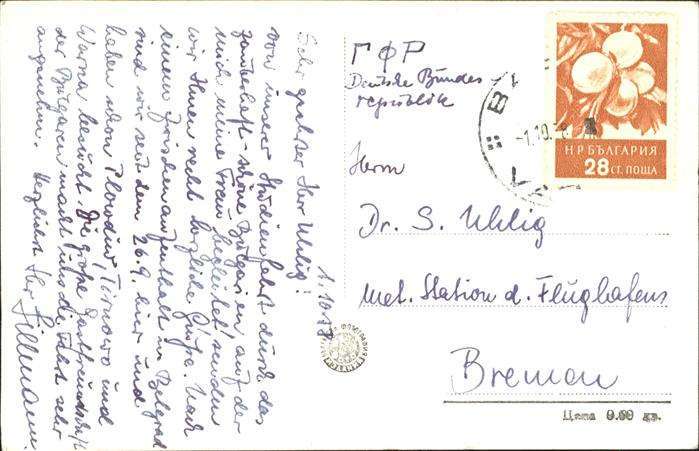 1.10.
Sehr geehrter Herr Uhlig!
von unserer Studienfahrt durch das
zauberhaft-schöne Bulgarien auf der
mich meine Frau begleitet, senden
wir Ihnen recht herzliche Grüße. Nach
einem Zwischenaufenthalt in Belgrad
sind wir seit dem 26.9. hier und
haben schon Plowdiw, Tirnowo und
Warna besucht. Die große Gastfreundsch.
der Bulgaren macht uns die Fahrt sehr
angenehm. Herzlichst Ihr
ГФР
Deutsche Bundes
republik
Herrn
Dr. S. Uhlig
Met. Station d. Flughafens
Bremen
Цена 0.60 лв.
НР БЪЛГАРИЯ
28 СТ. ПОЩА
-1.10.